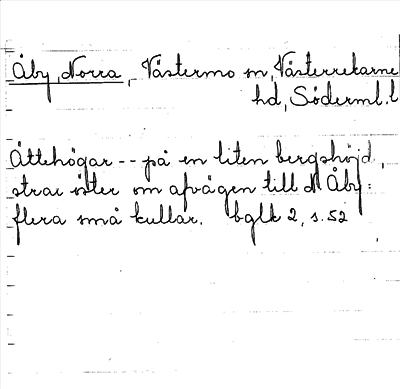 Åby, Norra, Västermo sn, Västerrekarne
hd, Söderml. l
Ättehögar -- på en liten bergshöjd,
strax öster om afvägen till N Åby:
flera små kullar. bglk 2, s. 52